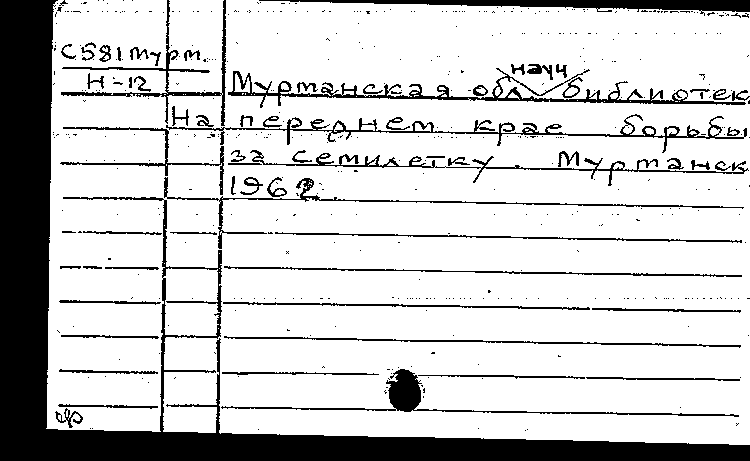 С581мурм.
Н-12
науч
Мурманская обл. библиотек
На переднем крае борьбы
за семилетку. Мурманск
1962.